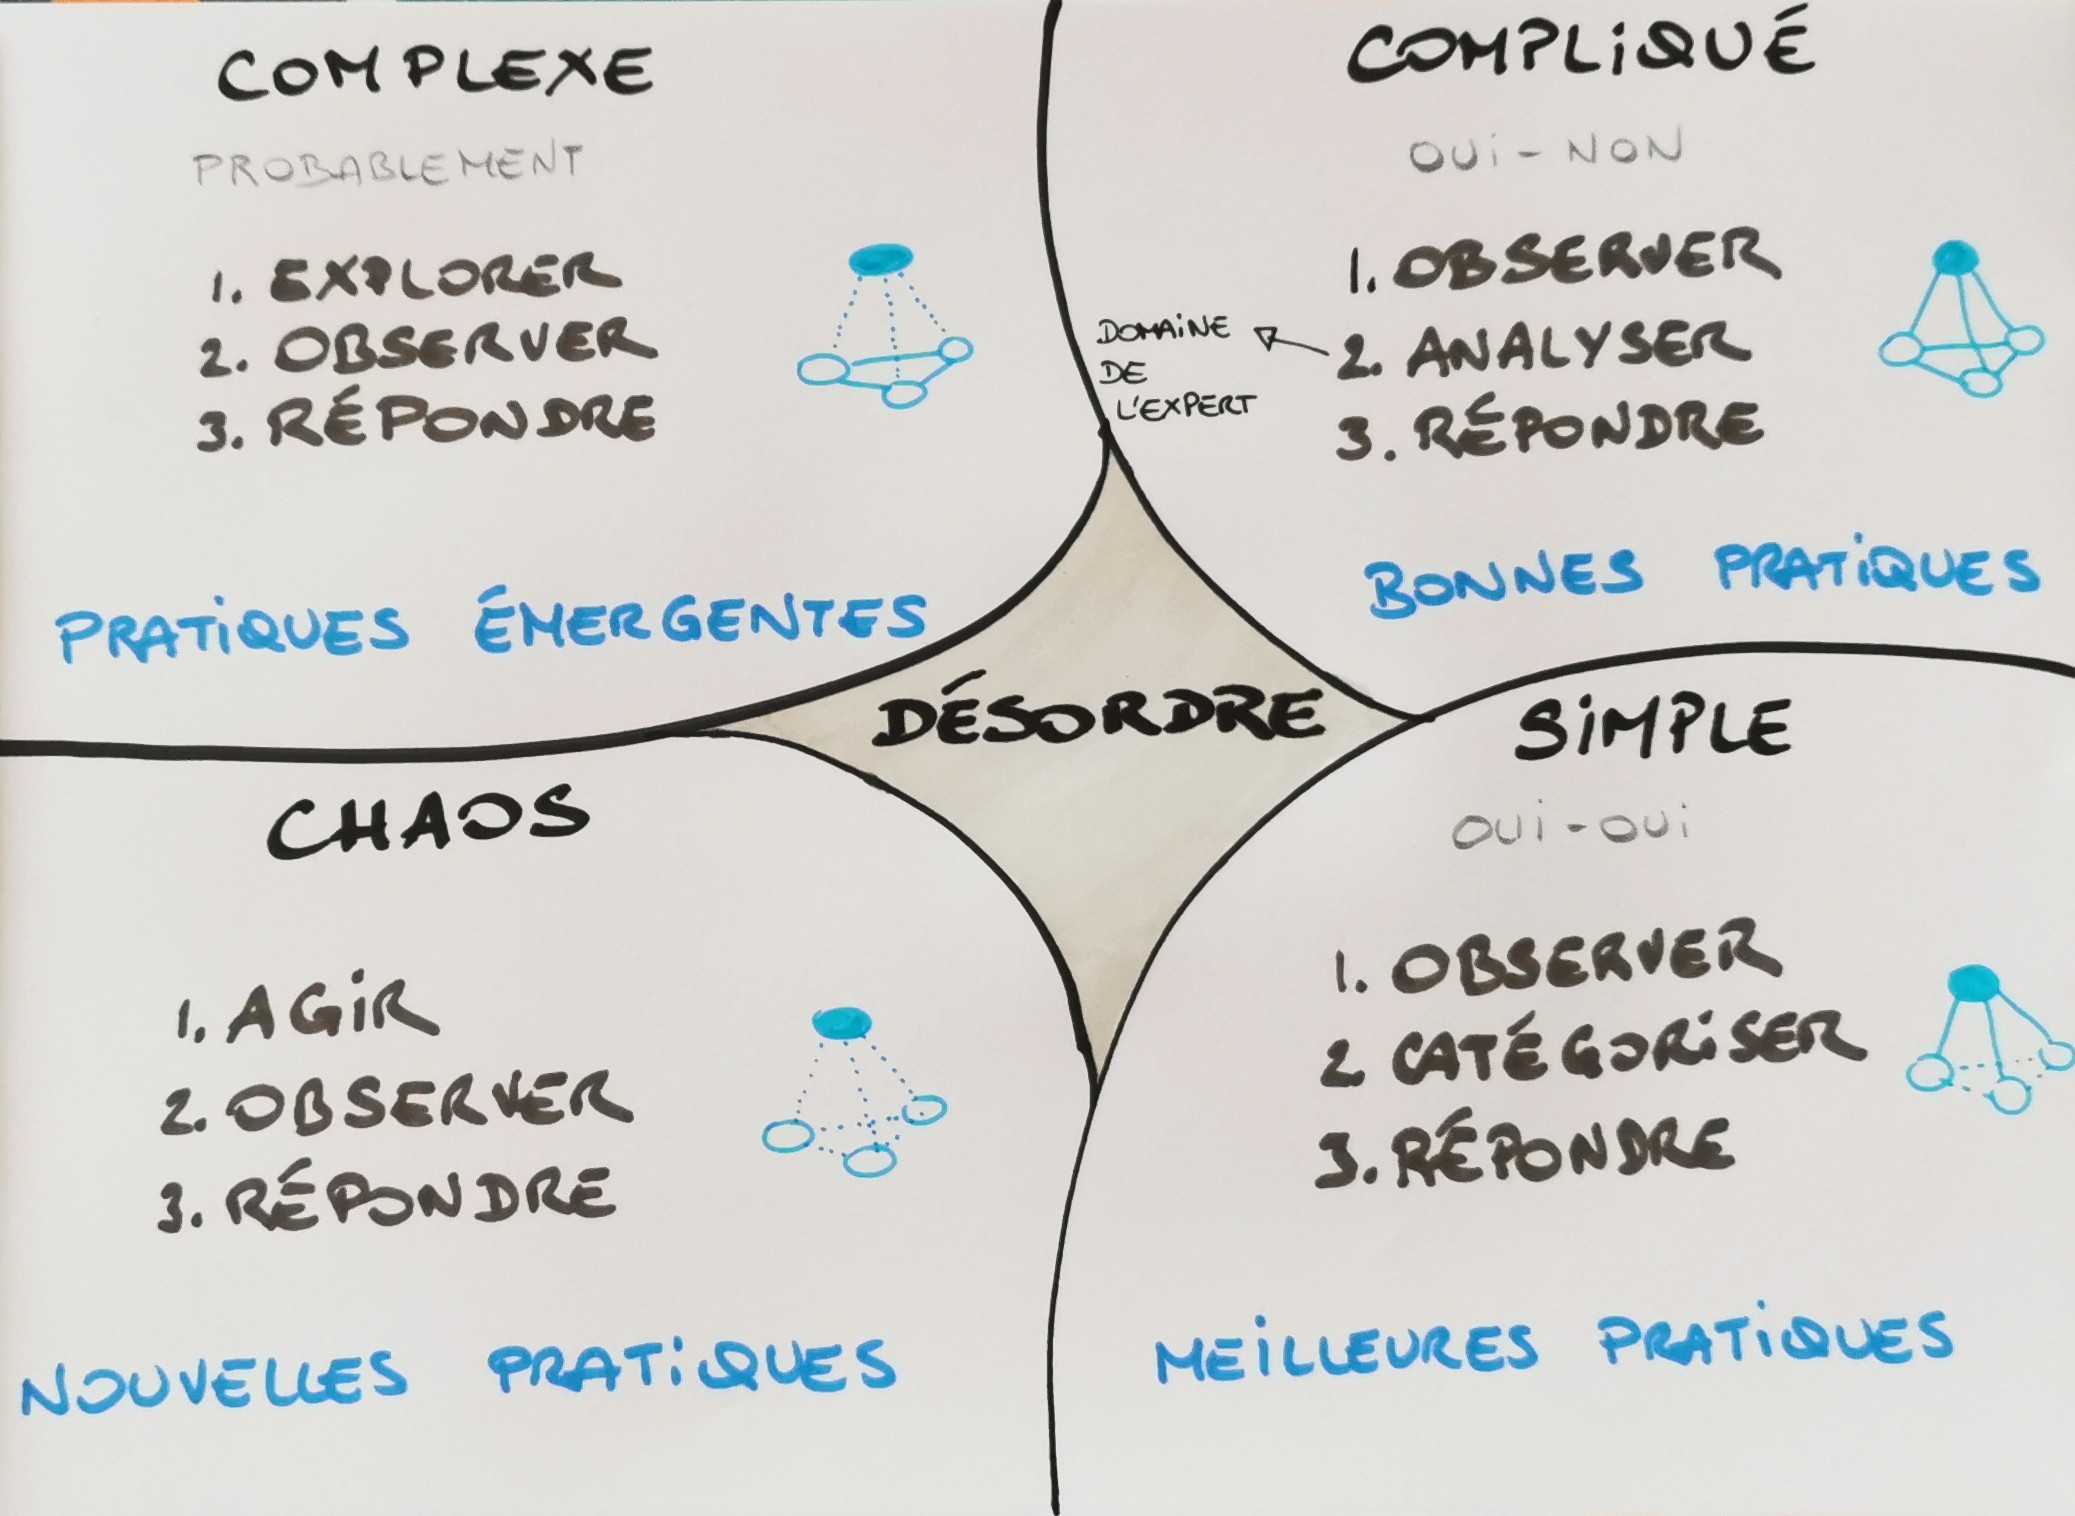 COMPLEXE
PROBABLEMENT
1. EXPLORER
2. OBSERVER
3. RÉPONDRE
PRATiQUES ÉMERGENTES
COMPLiQUÉ
OUi - NON
1. OBSERVER
2. ANALYSER
3. RÉPONDRE
DOMAiNE
DE
L'EXPERT
BONNES PRATiQUES
DÉSORDRE
CHAOS
1. AGiR
2. OBSERVER
3. RÉPONDRE
NOUVELLES PRATiQUES
SiMPLE
OUi - OUi
1. OBSERVER
2. CATÉGORiSER
3. RÉPONDRE
MEiLLEURES PRATiQUES